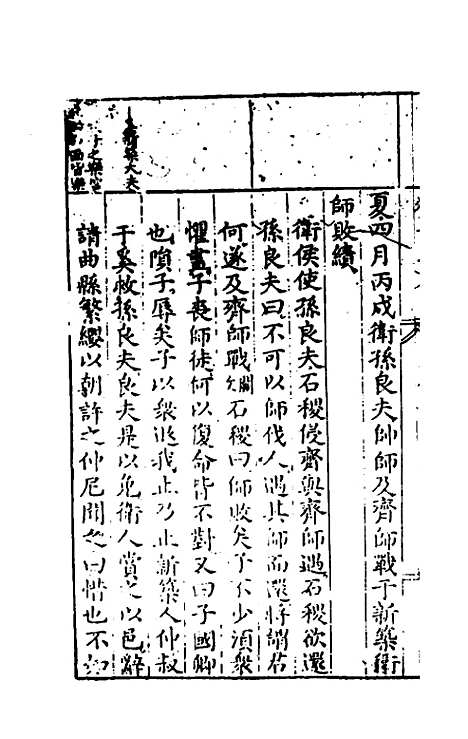 夏四月丙戌衛孫良夫帥師及齊師戰于新築衛
師敗績
衛侯使孫良夫石稷侵齊與齊師遇石稷欲還
孫良夫曰不可以師伐人遇其師而還將謂君
何遂及齊師戰闕石稷曰師敗矣子不少須衆
懼盡子喪師徒何以復命皆不對又曰子國卿
也隕子辱矣子以衆退我止乃止新築人仲叔
于奚救孫良夫良夫是以免衛人賞之以邑辭
請曲縣繁纓以朝許之仲尼聞之曰惜也不如
新築大夫